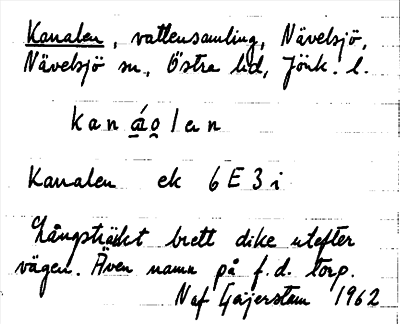 Kanalen, vattensamling, Nävelsjö,
Nävelsjö sn, Östra hd, Jönk. l.
kanáọlen
Kanalen ek 6E3i
Långsträckt brett dike utefter
vägen. Även namn på f.d. torp.
Naf Gejerstam 1962